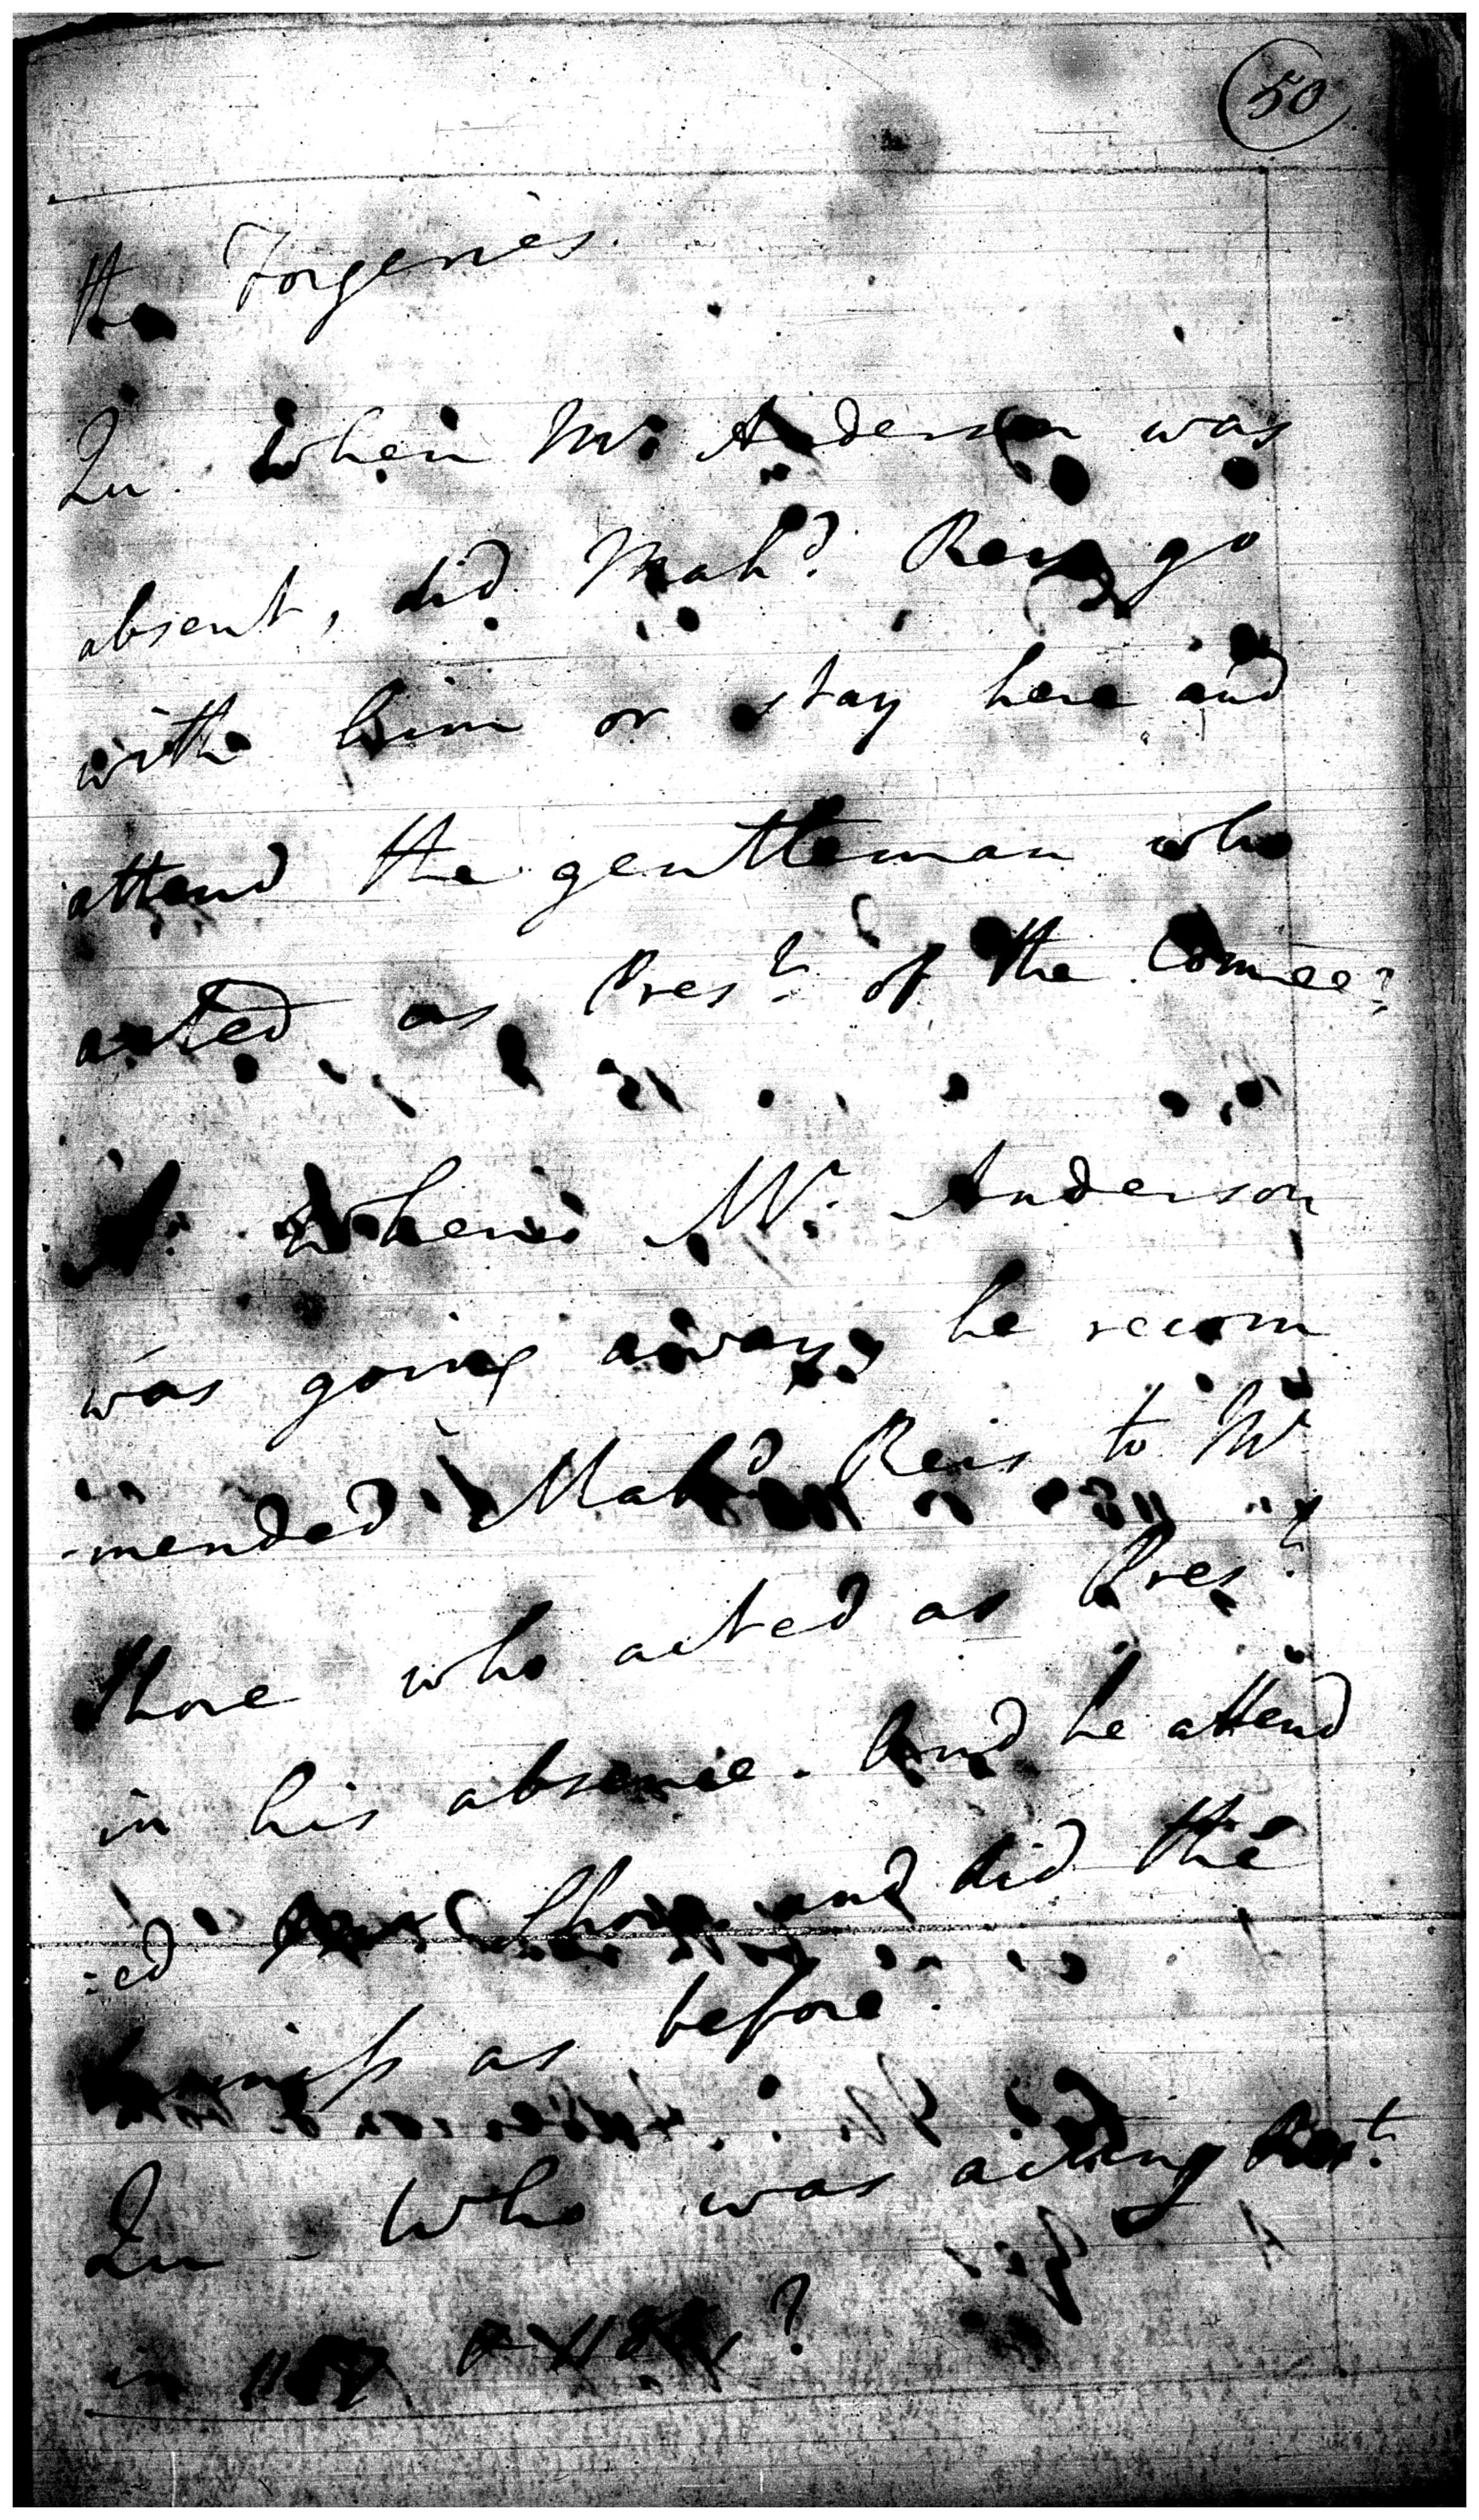 50
the Forgeries.
Qu. When Mr. Anderson was
absent, did Mahd. Reis go
with him or stay here and
attend the gentleman who
acted as Prest. of the Comee?
A. When Mr. Anderson
was going away he recom
-mended Mahd. Reis to Mr
Shore who acted as Prest.
in his absence. And he attend
-ed Mr Shore and did the
business as before.
Qu - Who was acting Prest.
in